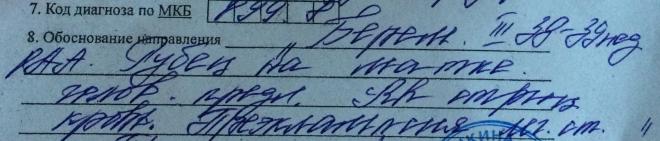 7. Код диагноза по МКБ
8. Обоснование направления Берем. III 38-39 нед
РАА. Рубец на матке.
голов. предл. Rh отриц
кровь. Преэклампсия ст. "